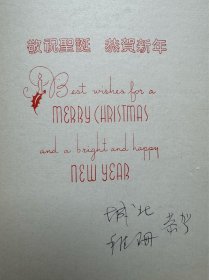 敬祝聖誕 恭賀新年
Best wishes for a
MERRY CHRISTMAS
and a bright and happy
NEW YEAR
城北
恭賀